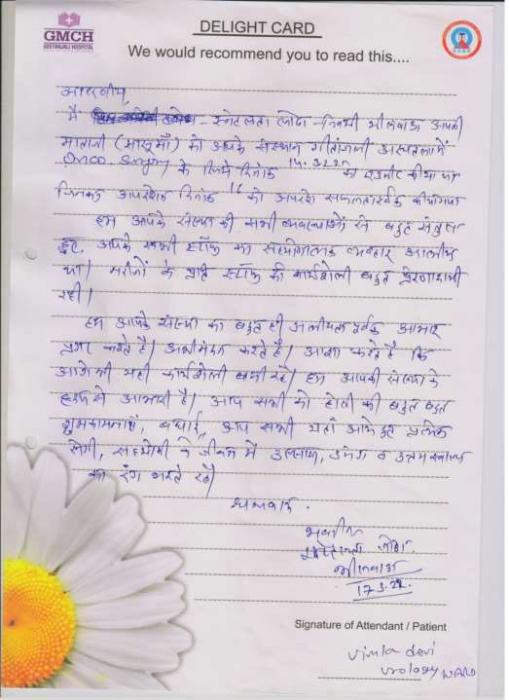 GMCH
GEETANJALI HOSPITAL
DELIGHT CARD
We would recommend you to read this....
आदरणीय,
मैं स्नेहलता लोढ़ा निवासी भीलवाड़ा अपनी
माताजी (सासूमाँ) को आपके संस्थान गीतांजली अस्पताल में
Onco Surgery के लिये दिनांक को एडमीट किया था
जिनका आपरेशन दिनांक 16 को आपरेशन सफलतापूर्वक किया गया
हम आपके संस्था की सभी व्यवस्थाओं से बहुत संतुष्ट
हुए, आपके सभी स्टॉफ का सहयोगात्मक व्यवहार आत्मीय
था। मरीजों के प्रति स्टॉफ की कार्यशैली बहुत प्रेरणादायी
रही।
हम आपके संस्था का बहुत ही आत्मीयता पूर्वक आभार
प्रगट करते है। अभिनंदन करते है। आशा करते है कि
आगे भी यही कार्यशैली बनी रहे। हम आपकी संस्था के
हृदय से आभारी है। आप सभी को होली की बहुत बहुत
शुभकामनाएं, बधाई, आप सभी यहाँ आके हुए प्रत्येक
रोगी, सहयोगी के जीवन में उल्लास, उमंग व उत्तम स्वास्थ्य
का रंग भरते रहे।
धन्यवाद.
भवदीय
स्नेहलता लोढ़ा
भीलवाड़ा
17.3.22
Signature of Attendant / Patient
Vimla devi
Urology WARD